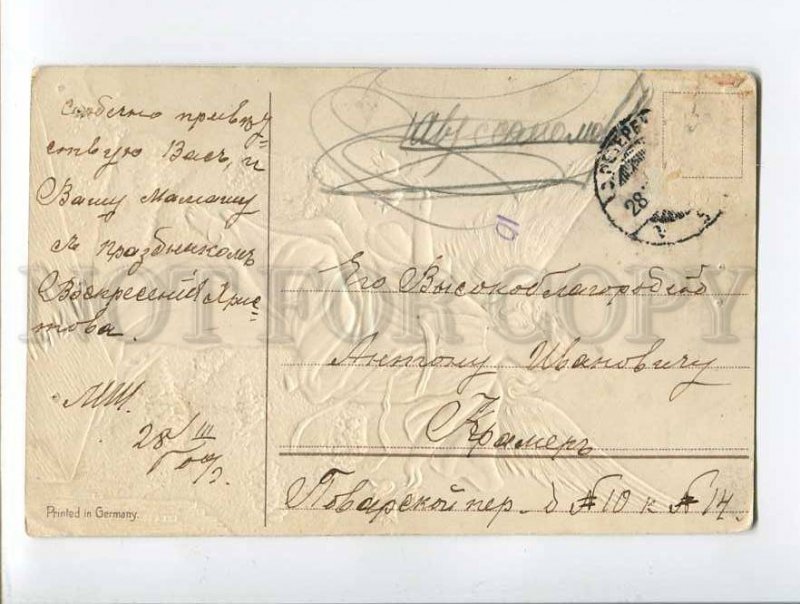 сердечно привѣт-
ствую Васъ, и
Вашу Мамашу
съ праздникомъ
Воскресенія Хрис-
това.
МШ.
28/III 09 г.
Printed in Germany.
28
10
Его Высокоблагородію
Антону Ивановичу
Крамеръ
Поварской пер. д № 10 к № 14.
NOT FOR COPY